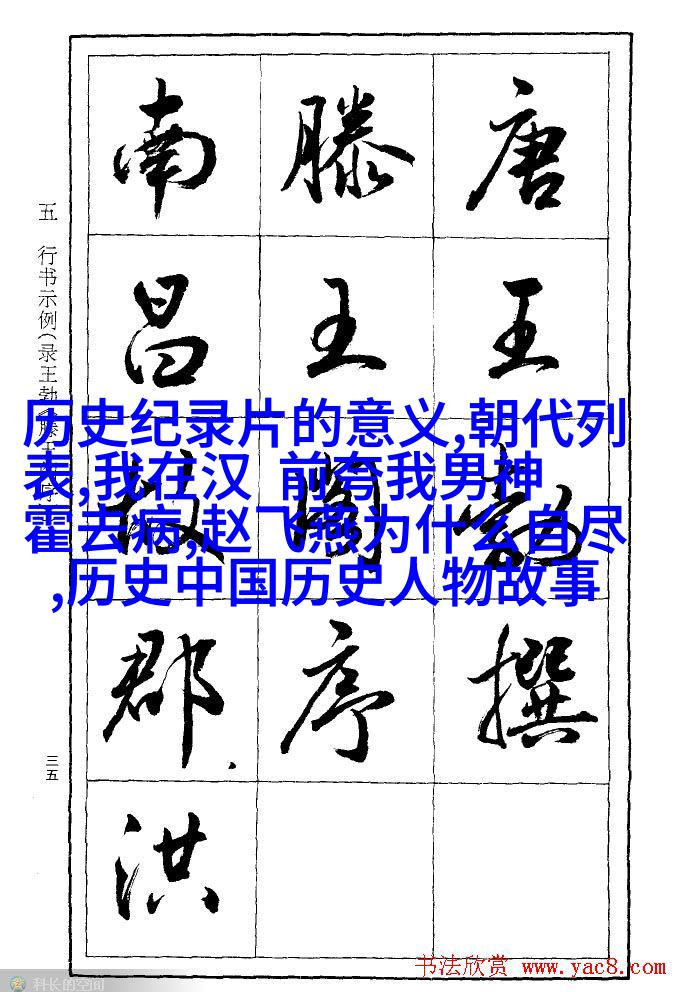 唐王勃撰
滕王閣序
南昌故郡.洪
五 行书示例(录王勃
三五
历史纪录片的意义,朝代列
表,我在汉 前夸我男神
霍去病,赵飞燕为什么自尽
,历史中国历史人物故事
科长的空间
书法欣赏 www.yac8.com